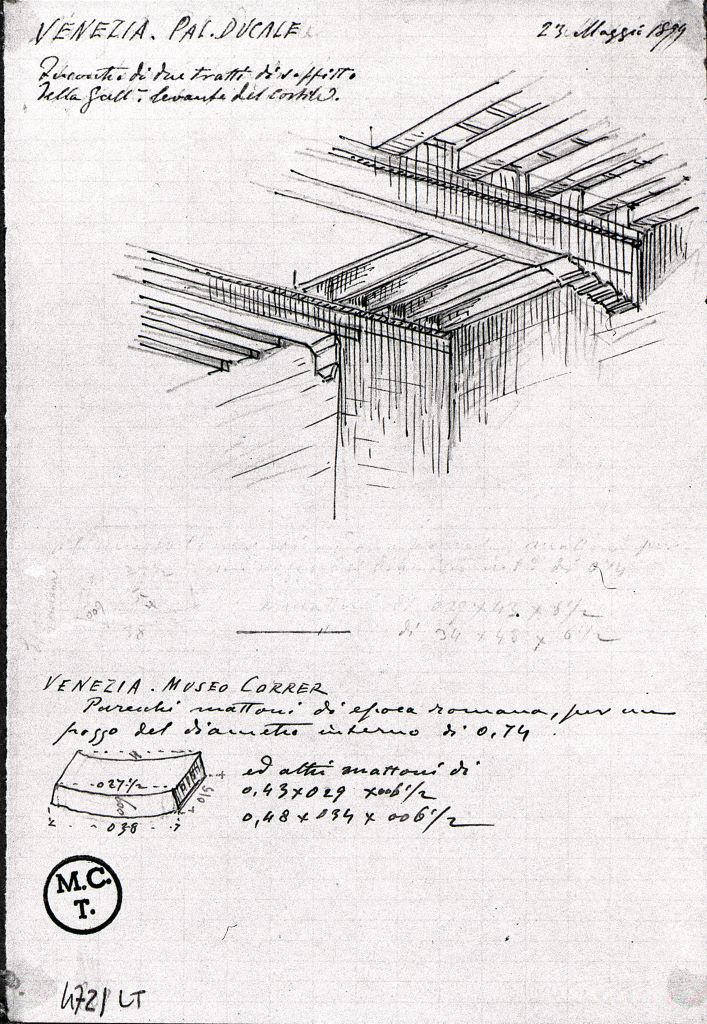 VENEZIA. PAL. DUCALE
23 Maggio 1899
di due tratti di soffitto
della Gall.ª levante del cortile.
di 0,74
029 x 43 x 6 1/2
di 34 x 48 x 6 1/2
VENEZIA. MUSEO CORRER
Parecchi mattoni di epoca romana, per un
pozzo del diametro interno di 0,74.
ed altri mattoni di
0,43 x 029 x 006 1/2
0,48 x 034 x 006 1/2
027 1/2
038
M.C.
T.
472/LT